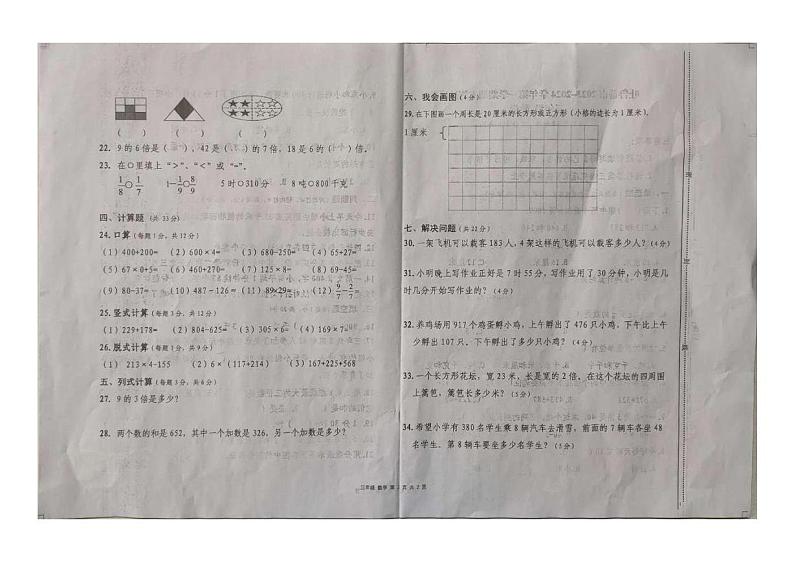 (　) (　) (　)
22. 9的6倍是(　)，42是(　)的7倍，18是6的(　)倍。
23. 在○里填上“>”、“<”或“=”。
1/8○1/7　1—1/9○8/9　5时○310分　8吨○800千克
四、计算题（共33分）
24. 口算（每题1分，共12分）
(1) 400+200=　(2) 600×4=　(3) 680-250=　(4) 65+27=
(5) 67×0+5=　(6) 460+270=　(7) 125×8=　(8) 69-45=
(9) 80-37=　(10) 487-126=　(11) 89×29≈　(12) 9/7-2/7=
25. 竖式计算（每题3分，共12分）
(1) 229+178=　(2) 804-625=　(3) 305×6=　(4) 169×7=
26. 脱式计算（每题3分，共9分）
(1) 213×4-155　(2) 6×(117+214)　(3) 167+225+568
五、列式计算（每题3分，共6分）
27. 9的3倍是多少？
28. 两个数的和是652，其中一个加数是326，另一个加数是多少？
六、我会画图（4分）
29. 在下图画一个周长是20厘米的长方形或正方形（小格的边长为1厘米）。
1厘米
七、解决问题（共22分）
30. 一架飞机可以载客183人，4架这样的飞机可以载客多少人？（4分）
31. 小明晚上写作业正好是7时55分，写作业用了30分钟，小明是几
时几分开始写作业的？（4分）
32. 养鸡场用917个鸡蛋孵小鸡，上午孵出了476只小鸡，下午比上午
少孵出107只。下午孵出了多少只小鸡？（4分）
33. 一个长方形花坛，宽23米，长是宽的2倍。在这个花坛的四周围
上篱笆，篱笆长多少米？（5分）
34. 希望小学有380名学生乘8辆汽车去滑雪，前面的7辆车各坐48
名学生。第8辆车要坐多少名学生？（5分）
三年级 数学 第2页 共2页